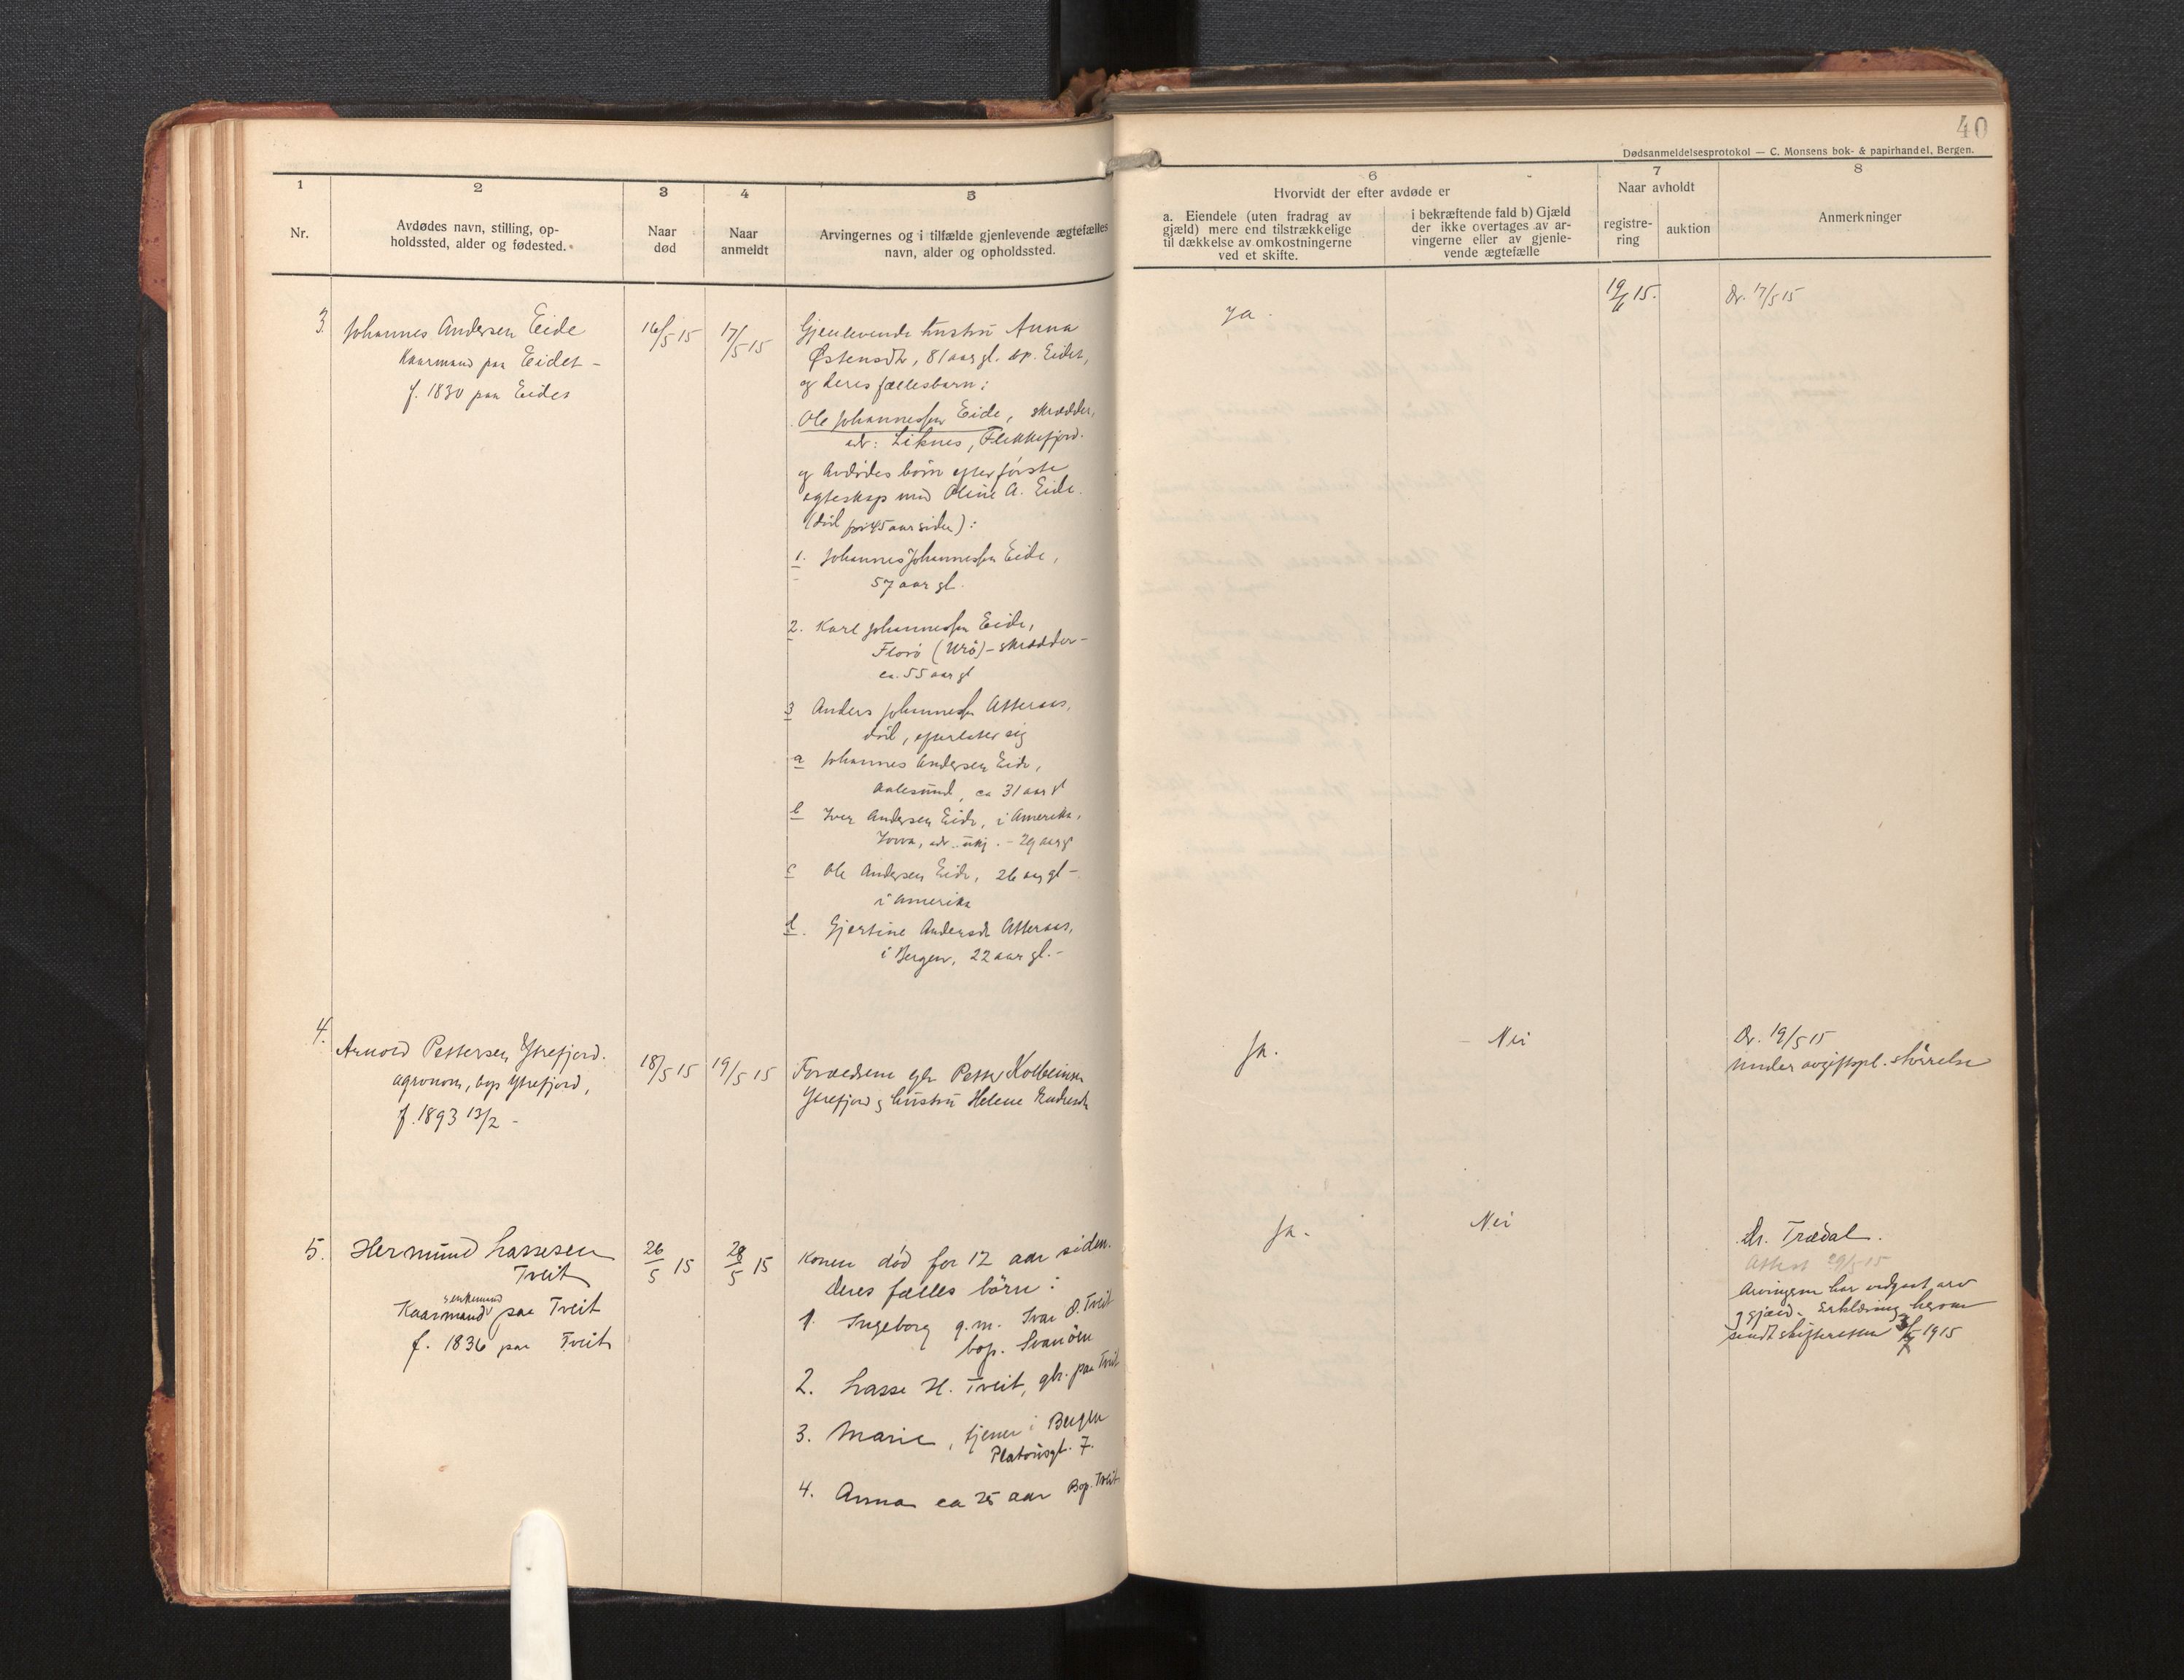 40
Dødsanmeldelsesprotokol — C. Monsens bok- & papirhandel, Bergen.
1
2
3
4
5
6
7
8
Nr.
Avdødes navn, stilling, op-
holdssted, alder og fødested.
Naar
død
Naar
anmeldt
Arvingernes og i tilfælde gjenlevende ægtefælles
navn, alder og opholdssted.
Hvorvidt der efter avdøde er
a. Eiendele (uten fradrag av
gjæld) mere end tilstrækkelige
til dækkelse av omkostningerne
ved et skifte.
i bekræftende fald b) Gjæld
der ikke overtages av ar-
vingerne eller av gjenle-
vende ægtefælle
Naar avholdt
registre-
ring
auktion
Anmerkninger
3.
Johannes Andersen Eide
Kaarmand paa Eidet -
f. 1830 paa Eidet
16/5 15
17/5 15
Gjenlevende hustru Anna
Østensdtr, 81 aar gl. bp. Eidet,
og deres fællesbarn:
Ole Johannessen Eide, skrædder,
adr: Liknes, Flekkefjord.
og Avdødes børn efter første
egteskap med Oline A. Eide.
(død for 45 aar siden):
1. Johannes Johannessen Eide,
57 aar gl.
2. Karl Johannessen Eide,
Florø (Urø) - skrædder -
ca. 55 aar gl
3 Anders Johannessen Atteraas,
død, efterlater sig
a Johannes Andersen Eide,
Aalesund, ca 31 aar gl
b Iver Andersen Eide, i Amerika,
Iowa, adr. ukj. - 29 aar gl
c Ole Andersen Eide, 26 aar gl -
i Amerika
d. Gjertine Andersdtr Atteraas,
i Bergen, 22 aar gl. -
Ja.
19/6 15.
Dr. 17/5 15
4.
Arnold Pettersen Ytrefjord.
agronom, bop Ytrefjord,
f. 1893 13/2 -
18/5 15
19/5 15
Forældrene gbr Petter Kolbeinsen
Ytrefjord g hustru Helene Endresdtr
Ja.
- Nei
Dr. 19/5 15
Under avgiftspl. størrelse
5.
Hermund Lassesen
Tveit
enkemand
Kaarmand paa Tveit
f. 1836 paa Tveit
26/5 15
28/5 15
Konen død for 12 aar siden.
deres fælles børn:
1. Ingeborg g.m. Ivar O. Tveit
bop. Svanöen
2. Lasse H. Tveit, gbr. paa Tveit
3. Marie, tjener i Bergen
Platousgt. 7.
4. Anna ca 25 aar Bop. Tveit
Ja.
Nei
Dr. Trædal.
Attest 29/5 15
Arvingerne har vedgaat arv
g gjæld. Erklæring herom
sendt skifteretten 1915